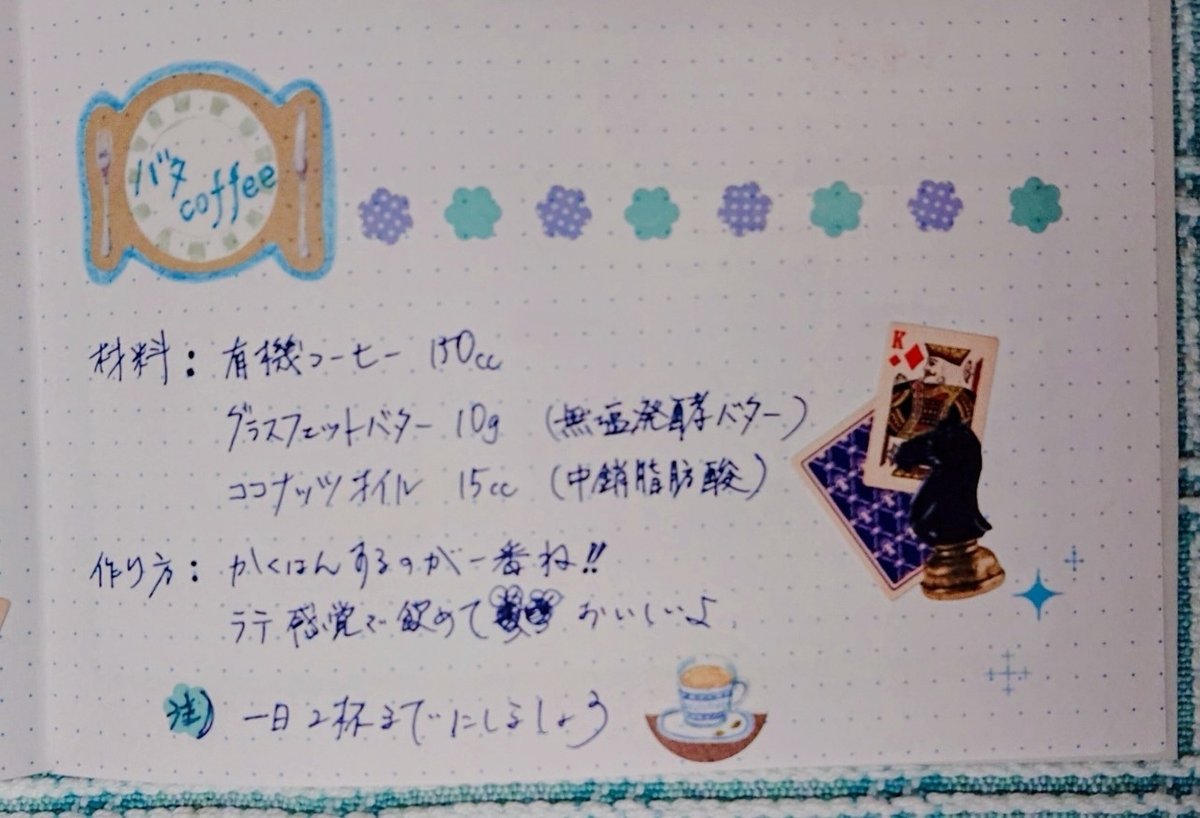 バタ
coffee
材料: 有機コーヒー 150cc
グラスフェットバター 10g (無塩発酵バター)
ココナッツオイル 15cc (中鎖脂肪酸)
作り方: かくはんするのが一番ね!!
ラテ感覚で飲めて おいしいよ
注) 一日2杯までにしましょう
K